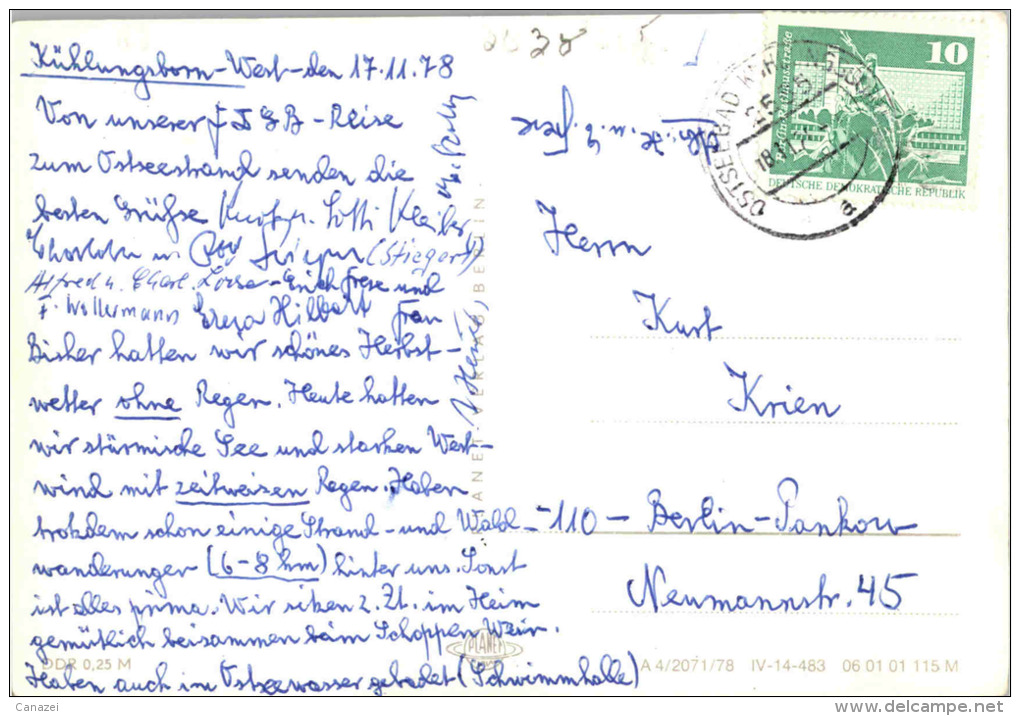 Kühlungsborn-West-den 17.11.78
Von unserer FDGB-Reise
zum Ostseestrand senden die
besten Grüsse Lotti Kleiber
(Stiegert)
Alfred u. Erich Frese und
F. Wollermann Hilbert Frau
Bisher hatten wir schönes Herbst-
wetter ohne Regen. Heute hatten
wir stürmische See und starken West-
wind mit zeitweisen Regen. Haben
trotzdem schon einige Strand- und Wald-
wanderungen (6-8 km) hinter uns. Sonst
ist alles prima. Wir sitzen z. Zt. im Heim
gemütlich beisammen beim Schoppen Wein.
Haben auch im Ostseewasser gebadet (Schwimmhalle)
38
Herrn
Kurt
Krien
-110- Berlin-Pankow
Neumannstr. 45
10
DEUTSCHE DEMOKRATISCHE REPUBLIK
OSTSEEBAD KÜHLUNGSBORN
18.11.
PLANET-VERLAG BERLIN
PLANET
DDR 0,25 M
A 4/2071/78 IV-14-483 06 01 01 115 M
Canazei